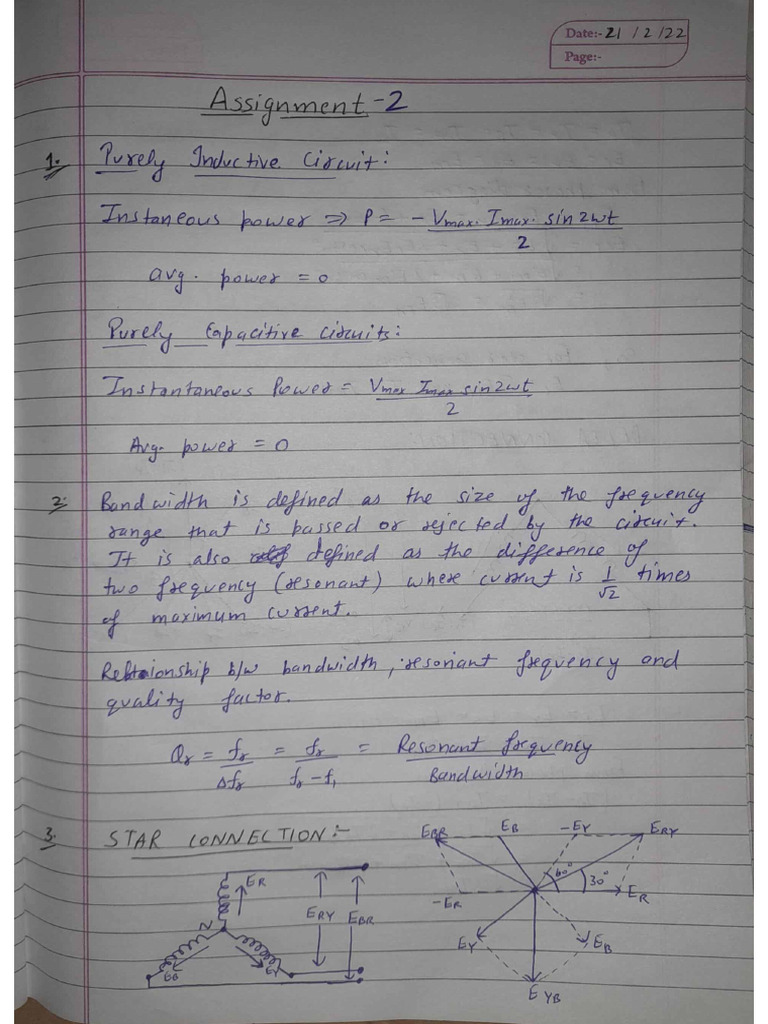 Date:- 21 / 2 / 22
Page:-
Assignment-2
1. Purely Inductive Circuit:
Instaneous power ⇒ P = - Vmax. Imax. sin2wt / 2
avg. power = 0
Purely Capacitive circuits:
Instantaneous Power = Vmax Imax sin2wt / 2
Avg. power = 0
2. Bandwidth is defined as the size of the frequency
range that is passed or rejected by the circuit.
It is also defined as the difference of
two frequency (resonant) where current is 1/√2 times
of maximum current.
Reltaionship b/w bandwidth, resoniant frequency and
quality factor.
Qr = fr/Δfr = fr/fr-f1 = Resonant frequency / Bandwidth
3. STAR CONNECTION:-
ER
ERY
EBR
N
EB
EY
EBR EB -EY ERY
60° 30°
-ER ER
EY EB
EYB